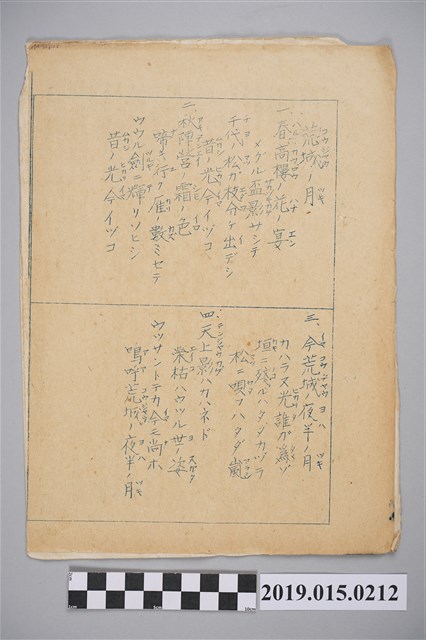 荒城ノ月
一、春高樓ノ花ノ宴
メグル盃影サシテ
千代ノ松ガ枝分ケ出デシ
昔ノ光今イヅコ
二、秋陣営ノ霜ノ色
啼キ行ク雁ノ數ミセテ
ウウル劍ニ輝リソヒシ
昔ノ光今イヅコ
三、今荒城ノ夜半ノ月
カハラヌ光誰ガ爲ゾ
垣ニ殘ルハタダカヅラ
松ニ唄フハタダ嵐
四、天上影ハカハネド
栄枯ハウツル世ノ姿
ウツサントテカ今モ尚ホ
嗚呼荒城ノ夜半ノ月
2019.015.0212